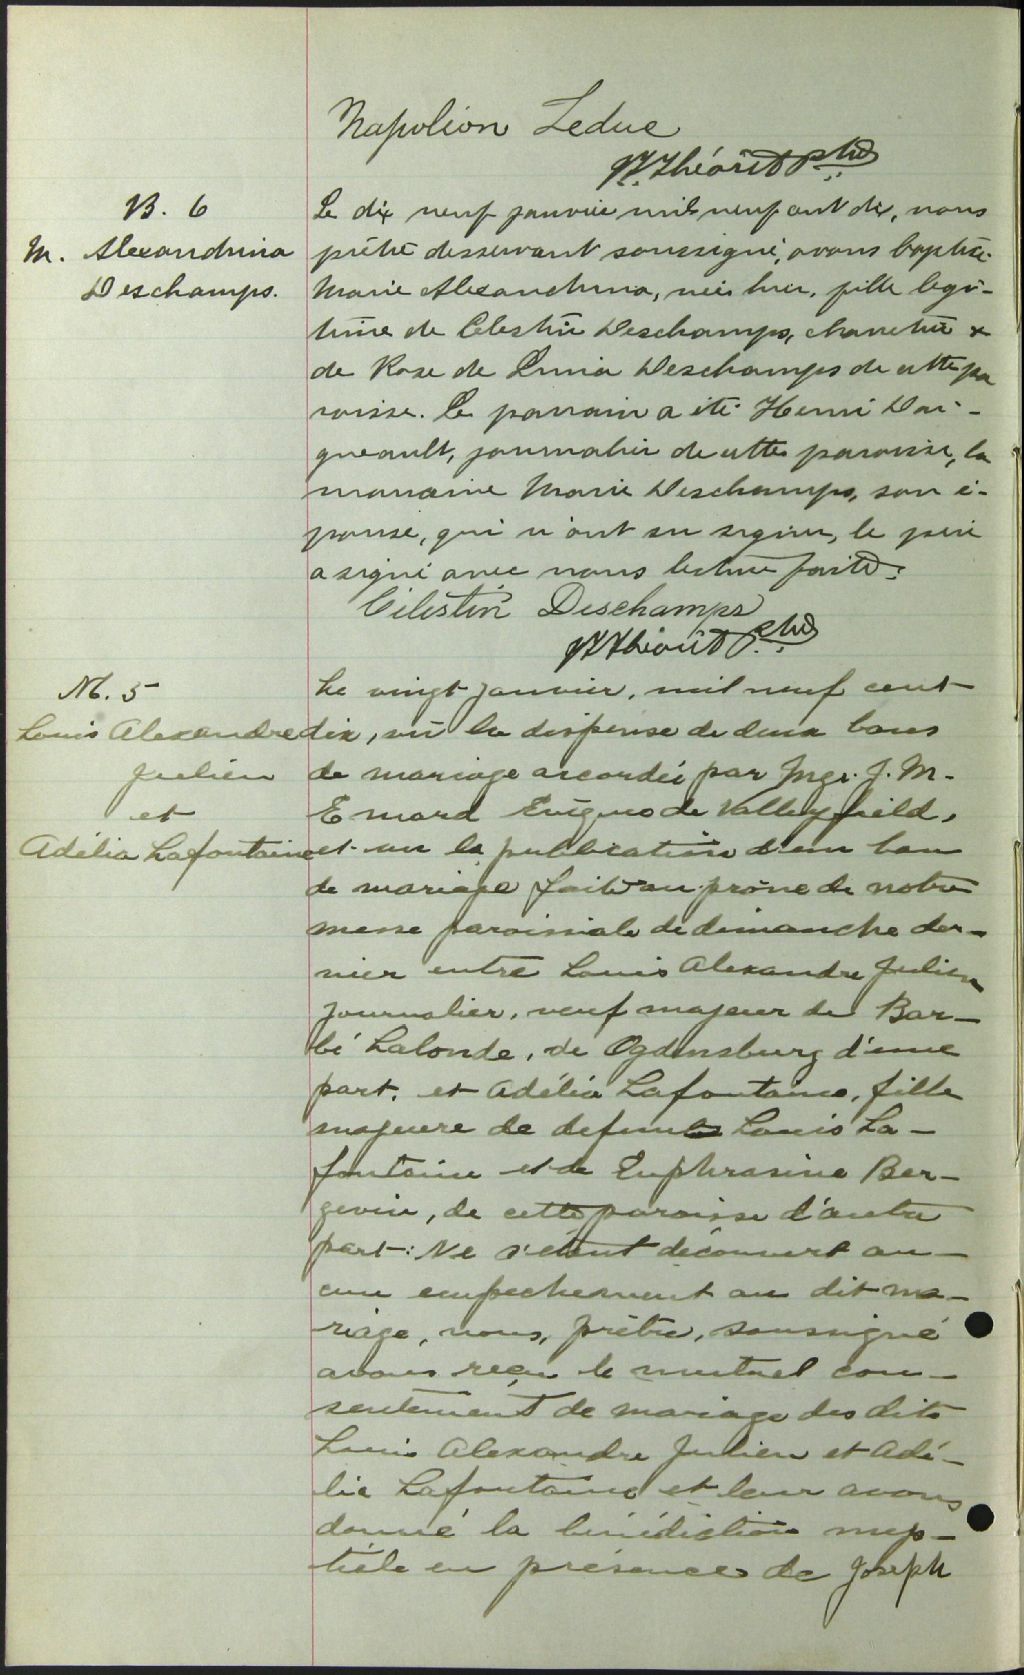 Napoléon Leduc
N. Théorêt Ptre
B. 6
M. Alexandrina
Deschamps.
Le dix neuf janvier mil neuf cent dix, nous
prêtre desservant soussigné, avons baptisé
Marie Alexandrina, née hier, fille légi-
time de Célestin Deschamps, charretier &
de Rose de Lima Deschamps de cette pa
roisse. Le parrain a été Henri Dai-
gneault, journalier de cette paroisse, la
marraine Marie Deschamps, son é-
pouse, qui n'ont su signer, le père
a signé avec nous lecture faite.
Célestin Deschamps
N Théorêt Ptre
M. 5
Louis Alexandre
Julien
et
Adélia Lafontaine
Le vingt janvier, mil neuf cent
dix, vû la dispense de deux bans
de mariage accordée par Mgr. J. M.
Emard Evêque de Valleyfield,
et vu la publication d'un ban
de mariage faite au prône de notre
messe paroissiale de dimanche der-
nier entre Louis Alexandre Julien
journalier, veuf majeur de Bar-
bé Lalonde, de Ogdensburg d'une
part, et Adélia Lafontaine, fille
majeure de defunts Louis La-
fontaine et de Euphrasine Ber-
gevin, de cette paroisse d'autre
part: Ne s'étant découvert au-
cun empechement au dit ma-
riage, nous, prêtre, soussigné
avons reçu le mutuel con-
sentement de mariage des dits
Louis Alexandre Julien et Adé-
lia Lafontaine et leur avons
donné la bénédiction nup-
tiale en présence de Joseph